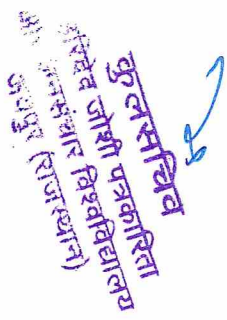 कुलसचिव
हरिदेव जोशी पत्रकारिता
जनसंचार विश्वविद्यालय
(राजस्थान)